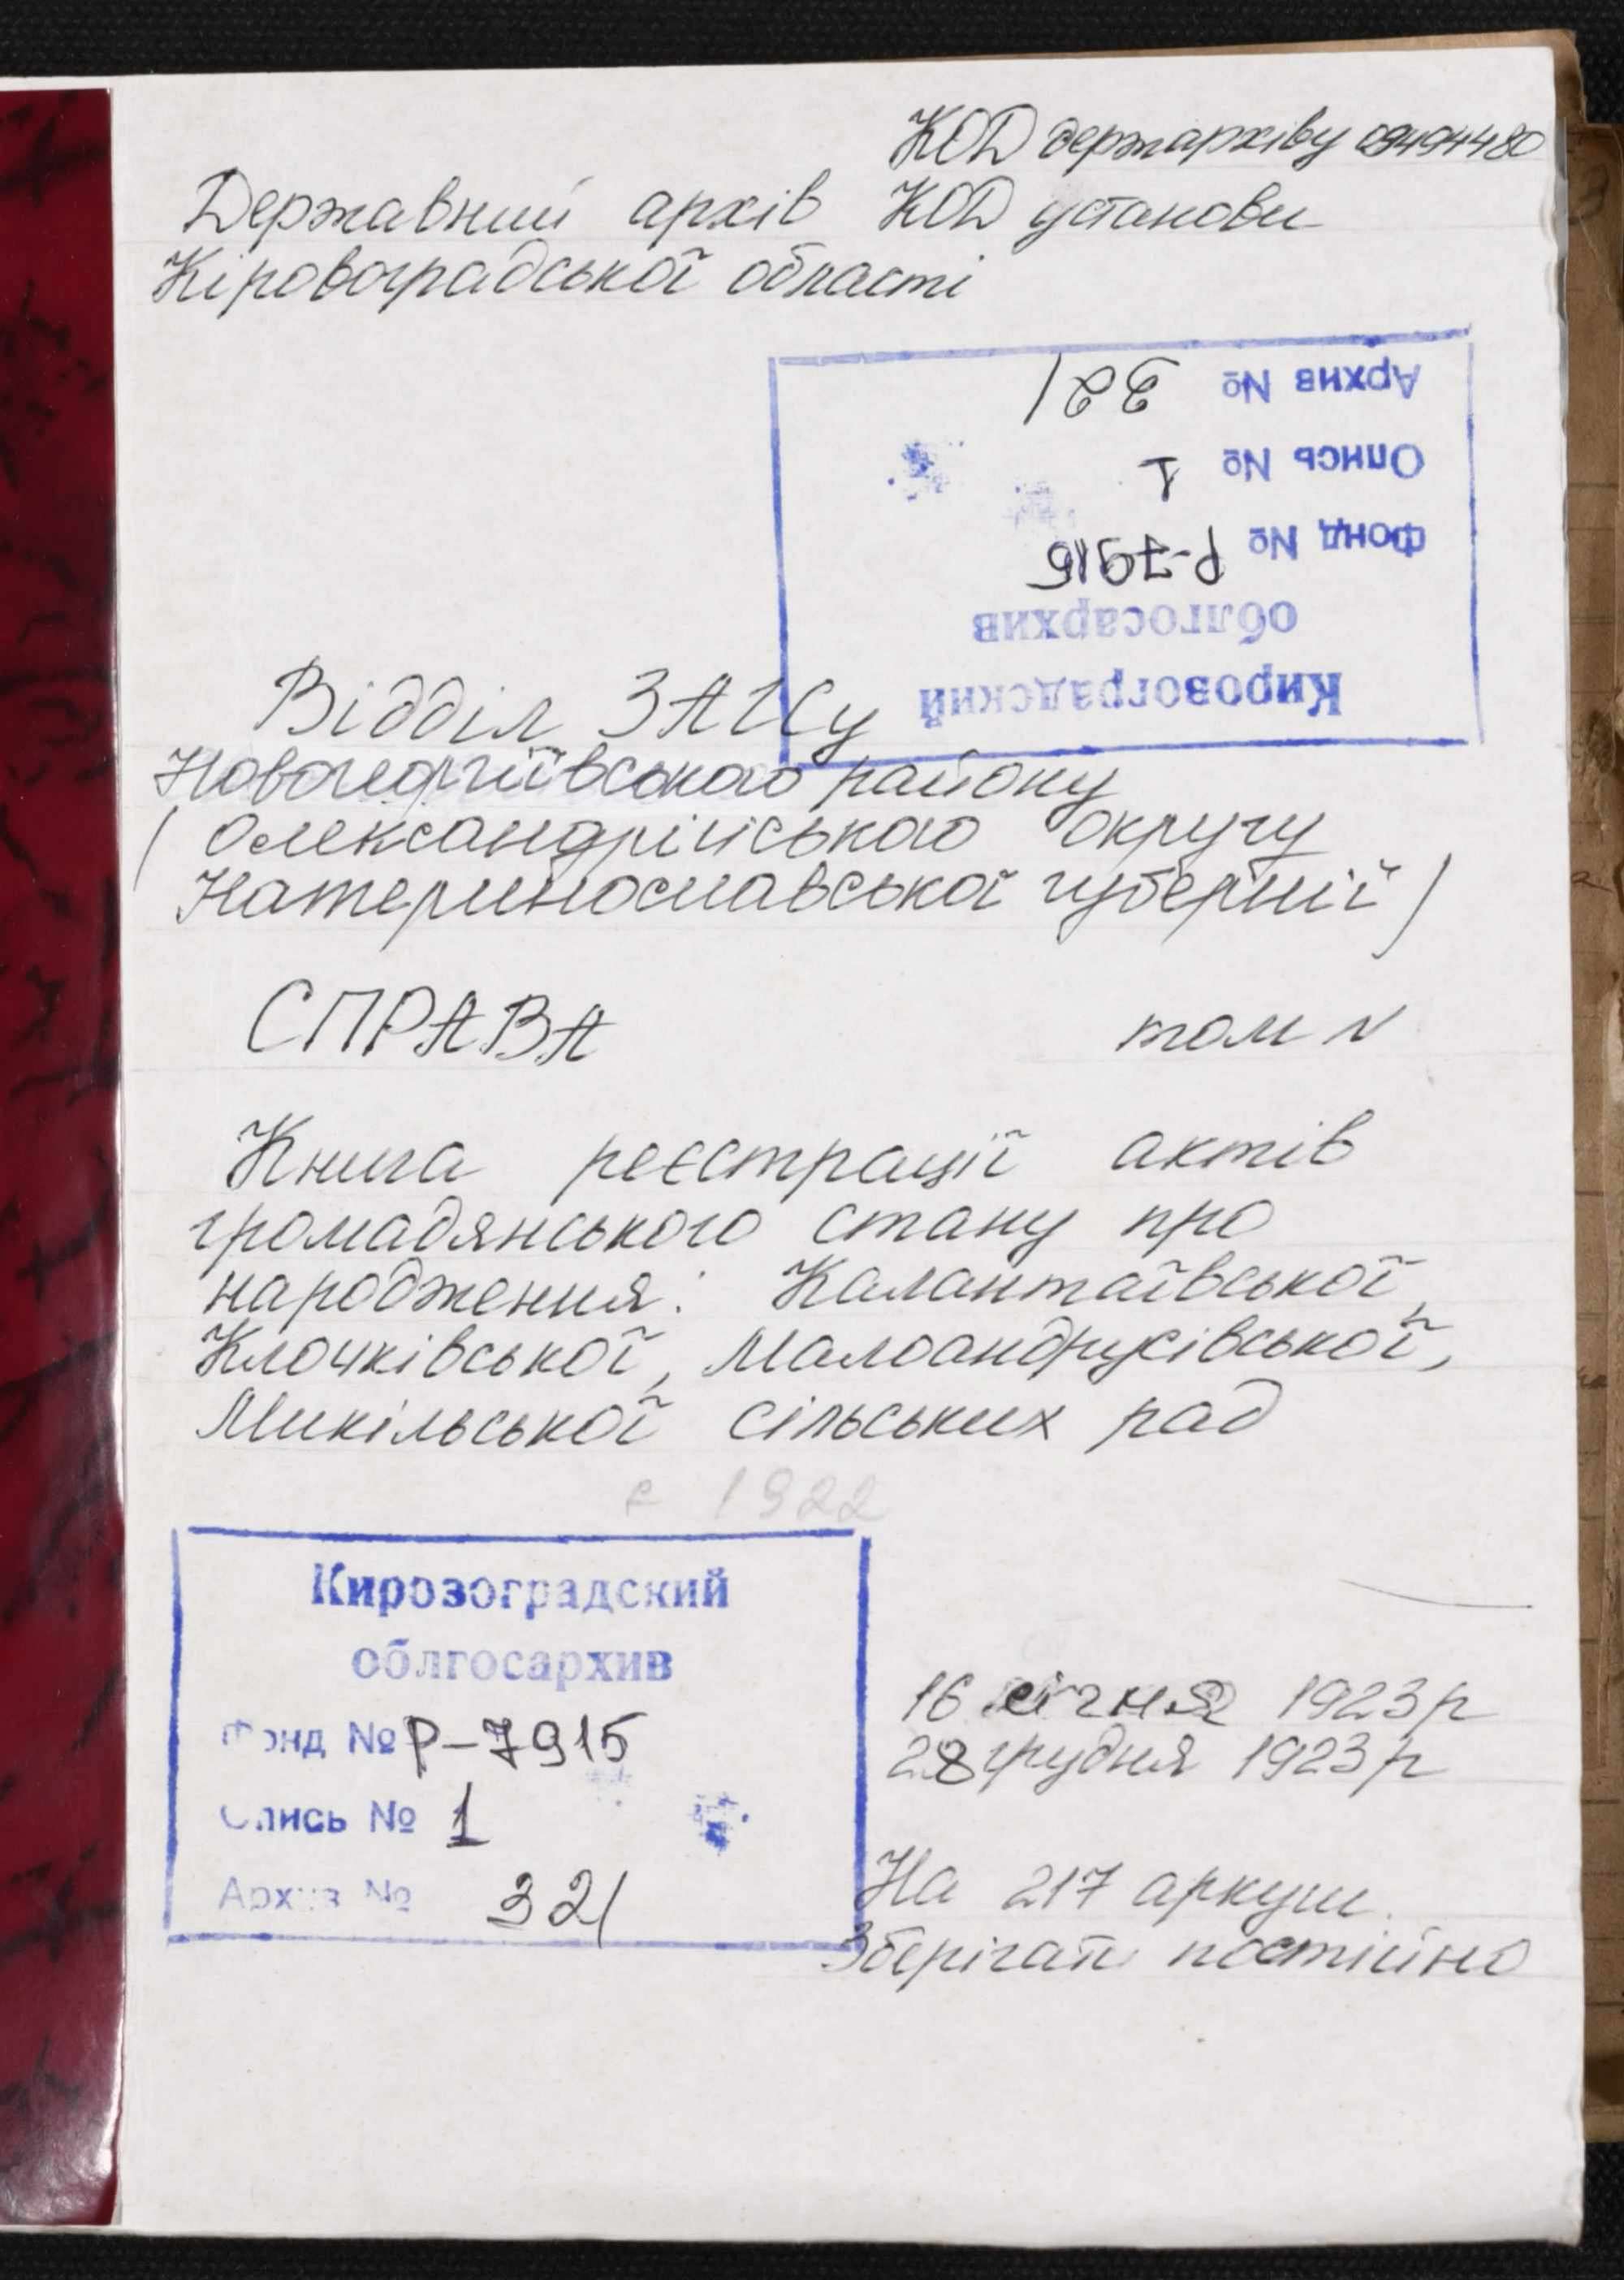 КОД держархіву 03494480
Державний архів КОД установи
Кіровоградської області
Кировоградский
облгосархив
Фонд № Р-7915
Опись № 1
Архив № 321
Відділ ЗАГСу
Новогеоргіївського району
(Олександрійського округу
Катеринославської губернії)
СПРАВА том №
Книга реєстрації актів
громадянського стану про
народження: Калантаївської,
Клочківської, Малоандрусівської,
Микільської сільських рад
1922
Кировоградский
облгосархив
Фонд № Р-7915
Опись № 1
Архив № 321
16 січня 1923р
28 грудня 1923р
На 217 аркуш.
Зберігати постійно